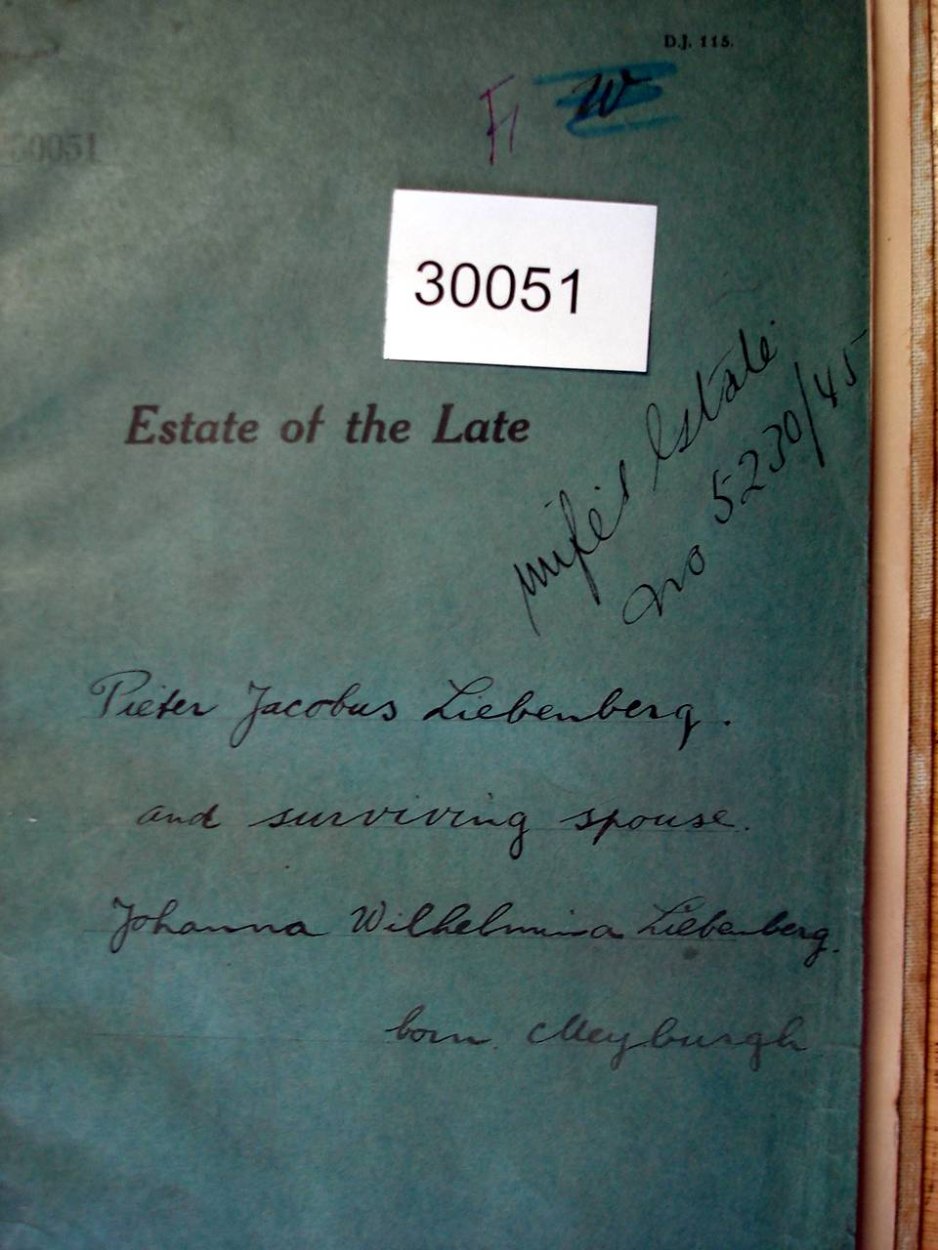 D.J. 115.
W
30051
30051
Estate of the Late
wife's Estate
no 5230/45
Pieter Jacobus Liebenberg.
and surviving spouse.
Johanna Wilhelmina Liebenberg.
born Meyburgh